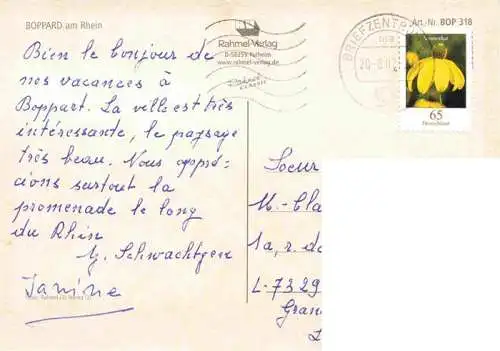 BOPPARD am Rhein
Rahmel-Verlag
D-50259 Pulheim
www.rahmel-verlag.de
Art.-Nr. BOP 318
BRIEFZENTRUM
65
Deutschland
Bien le bonjour de
nos vacances à
Boppart. La ville est très
intéressante, le paysage
très beau. Nous appré-
cions surtout la
promenade le long
du Rhin
Schwachtgen
Janine
Soeur
M.-Cla
1a, r. de
L-7329
Gran